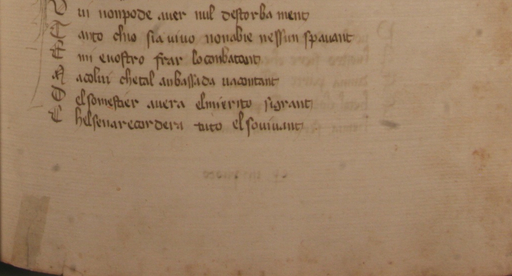 ui nonpode auer nul destorbament
anto chio sia uiuo nonabie nessun spauant
mi euostro frar lo conbatant
acolui chetal anbassada uacontant
elsomestier auera elmierito sigrant
helsenarecordera tuto elsouiuant